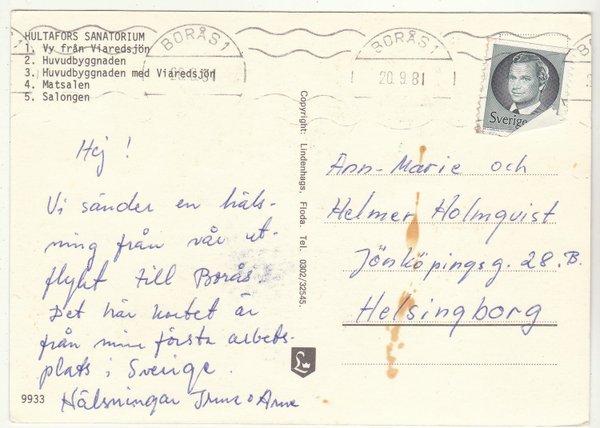 HULTAFORS SANATORIUM
1. Vy från Viaredsjön
2. Huvudbyggnaden
3. Huvudbyggnaden med Viaredsjön
4. Matsalen
5. Salongen
BORÅS 1
20.9.81
BORÅS 1
20.9.81
Sverige
Hej!
Vi sänder en häls-
ning från vår ut-
flykt till Borås.
Det här kortet är
från min första arbets-
plats i Sverige.
Hälsningar Irma o Arne
9933
Copyright: Lindenhags, Floda. Tel. 0302/32545.
Ann-Marie och
Helmer Holmqvist
Jönköpingsg. 28. B.
Helsingborg